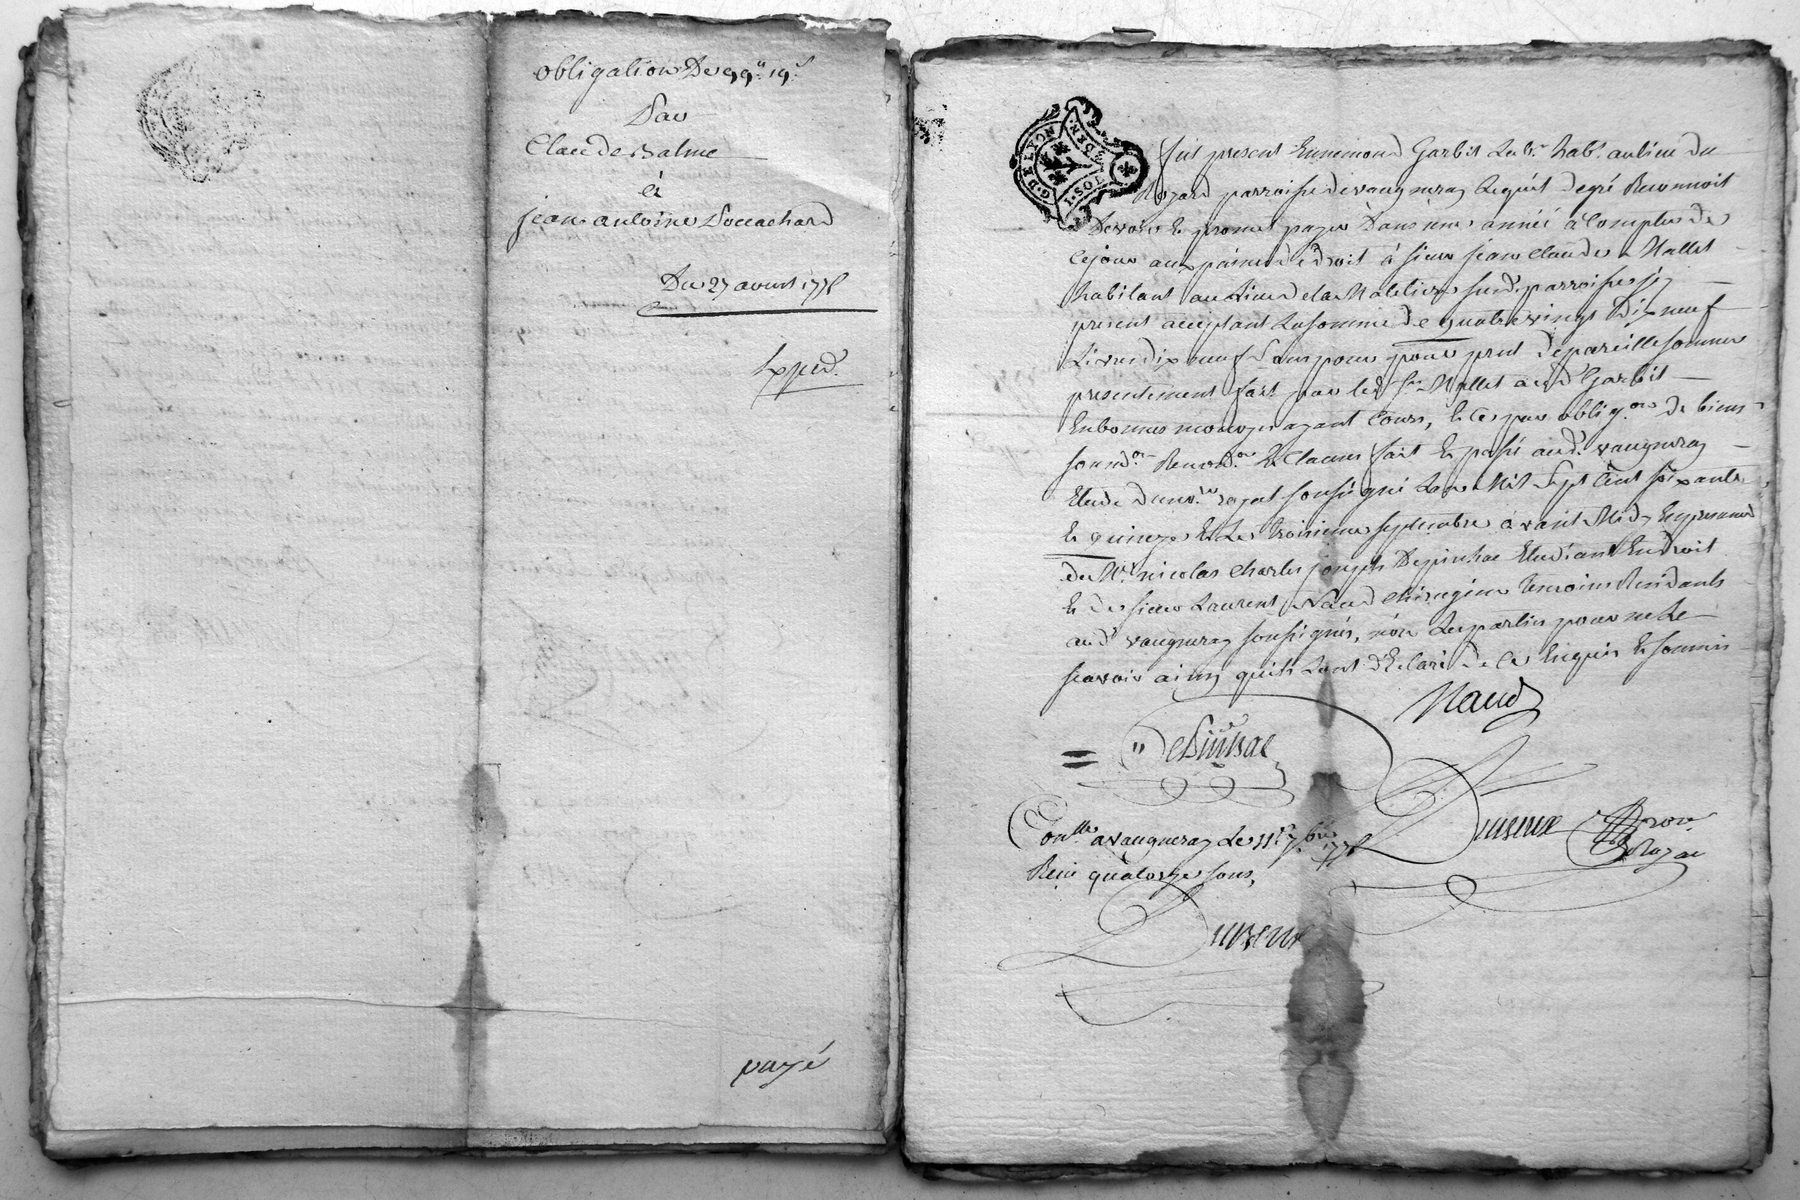 obligation De 99ᵗᵗ 19ˢ
Par
Claude Balme
à
jean antoine Boccachard
Du 27 aoust 1775
Exped.
payé
G. DE LYON
1. SOL 4 DEN.
fut present Ennemond Garbit Lab.r hab.t au lieu du
Rozard parroisse de vaugneray lequel de gré Reconnoit
Devoir et promet payer Dans une année à Compter de
Ce jour aux peines de droit à sieur jean Claude Mallet
habitant au Lieu de la Maletiere susd. parroisse icy
present acceptant La somme de quatre vingt Dix neuf
Livres dix neuf Sous pour pour pret de pareille somme
presentement fait par led. s.r Mallet aud. Garbit
En bonnes monoyes ayant Cours, et ce par oblig.on de biens
soum.on Renon.on et Clauses fait et passé aud. vaugneray
Etude du no.re royal soussigné L'an Mil Sept Cent soixante
et quinze et Le troisieme septembre avant Midy En presence
de M.r nicolas charles joseph Depinhac Etudiant En droit
et de sieur Laurent Naud chirurgien temoins Residants
aud. vaugneray soussignés, non Les parties pour ne Le
scavoir ainsy qu'ils L'ont déclaré de ce Enquis et sommés
Naud
Con.llé a vaugneray Le 11 7.bre 1775
Reçu quatorze sous,